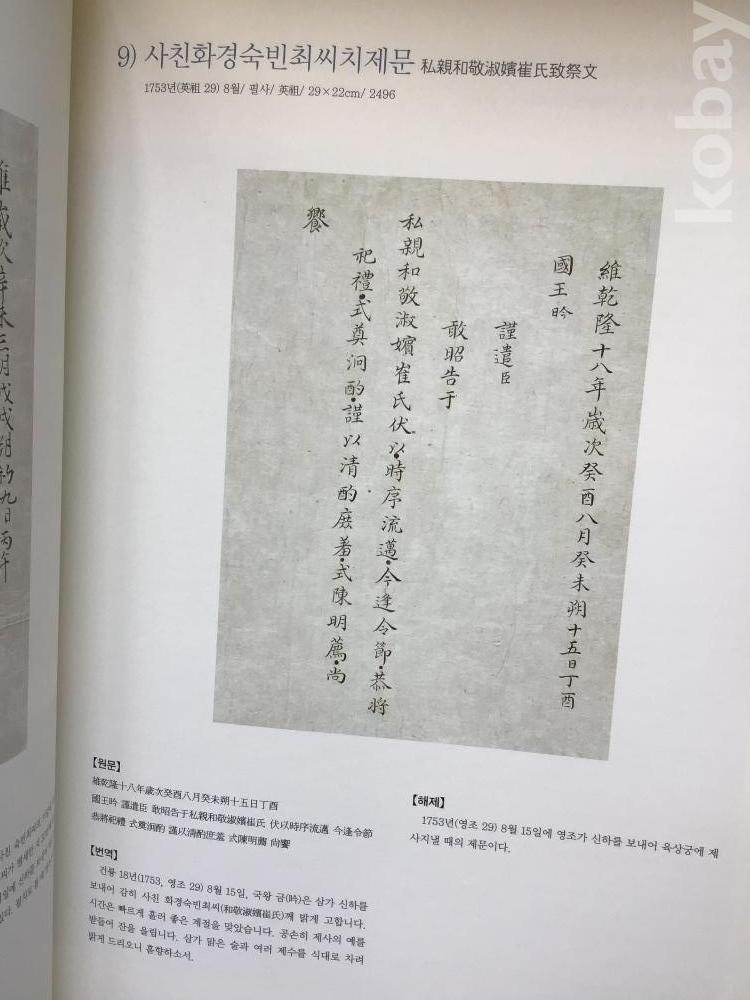 9) 사친화경숙빈최씨치제문 私親和敬淑嬪崔氏致祭文
1753년(英祖 29) 8월/ 필사/ 英祖/ 29×22cm/ 2496
kobay
維乾隆十八年歲次癸酉八月癸未朔十五日丁酉
國王昑
謹遣臣
敢昭告于
私親和敬淑嬪崔氏伏以時序流邁今逢令節恭將
祀禮式奠泂酌謹以清酌庶羞式陳明薦尙
饗
【원문】
維乾隆十八年歲次癸酉八月癸未朔十五日丁酉
國王昑 謹遣臣 敢昭告于私親和敬淑嬪崔氏 伏以時序流邁 今逢令節
恭將祀禮 式奠泂酌 謹以清酌庶羞 式陳明薦 尙饗
【번역】
건륭 18년(1753, 영조 29) 8월 15일, 국왕 금(昑)은 삼가 신하를
보내어 감히 사친 화경숙빈최씨(和敬淑嬪崔氏)께 밝게 고합니다.
시간은 빠르게 흘러 좋은 계절을 맞았습니다. 공손히 제사의 예를
받들어 잔을 올립니다. 삼가 맑은 술과 여러 제수를 식대로 차려
밝게 드리오니 흠향하소서.
【해제】
1753년(영조 29) 8월 15일에 영조가 신하를 보내어 육상궁에 제
사지낼 때의 제문이다.